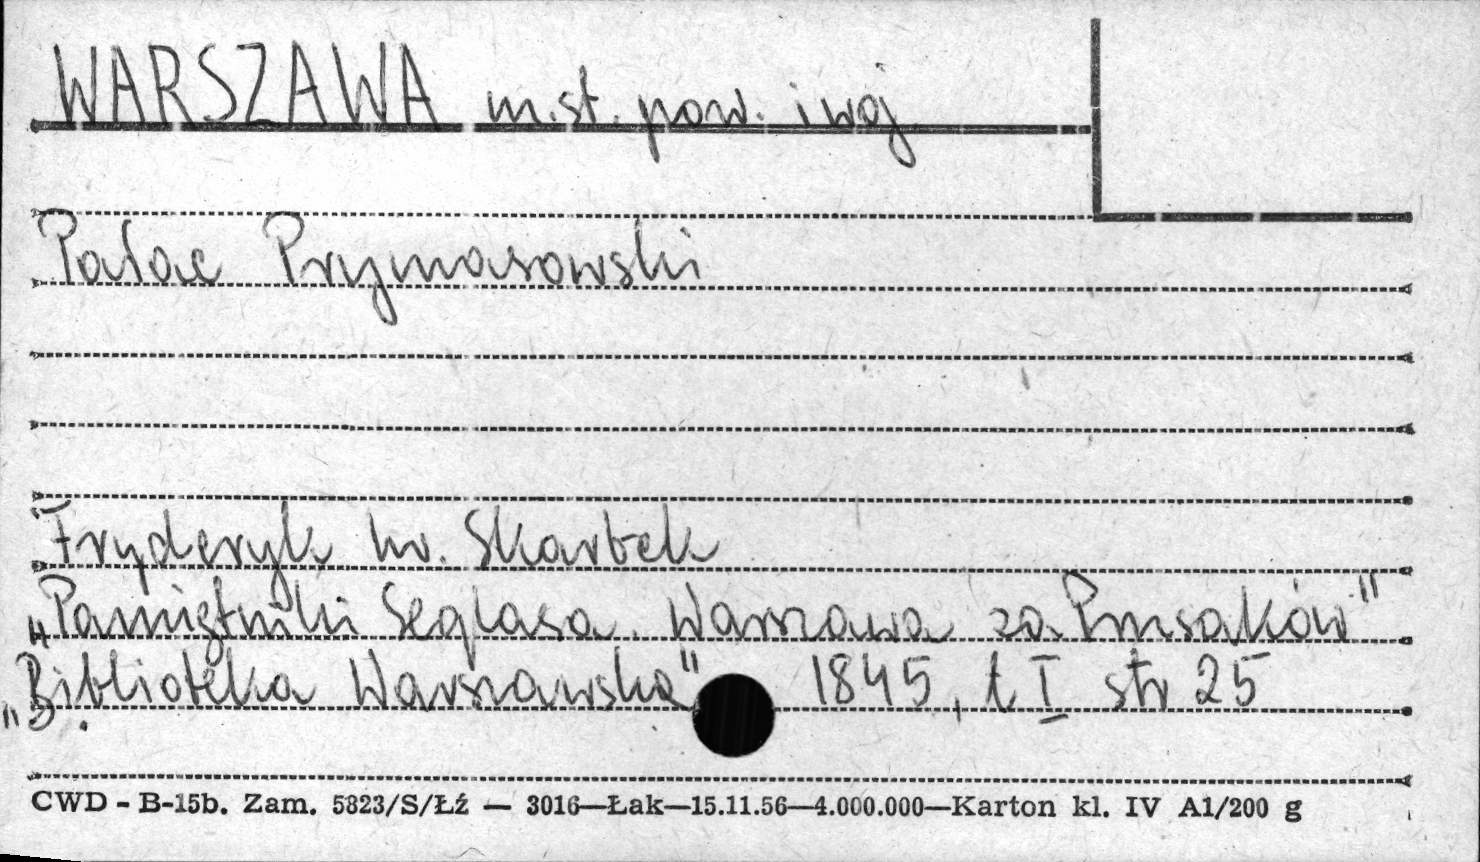 WARSZAWA m.st. pow. i woj
Pałac Prymasowski
Fryderyk hr. Skarbek
„Pamiętniki Seglasa. Warszawa za Prusaków"
„Biblioteka Warszawska" 1845, t I str 25
CWD - B-15b. Zam. 5823/S/Łź — 3016—Łak—15.11.56—4.000.000—Karton kl. IV A1/200 g